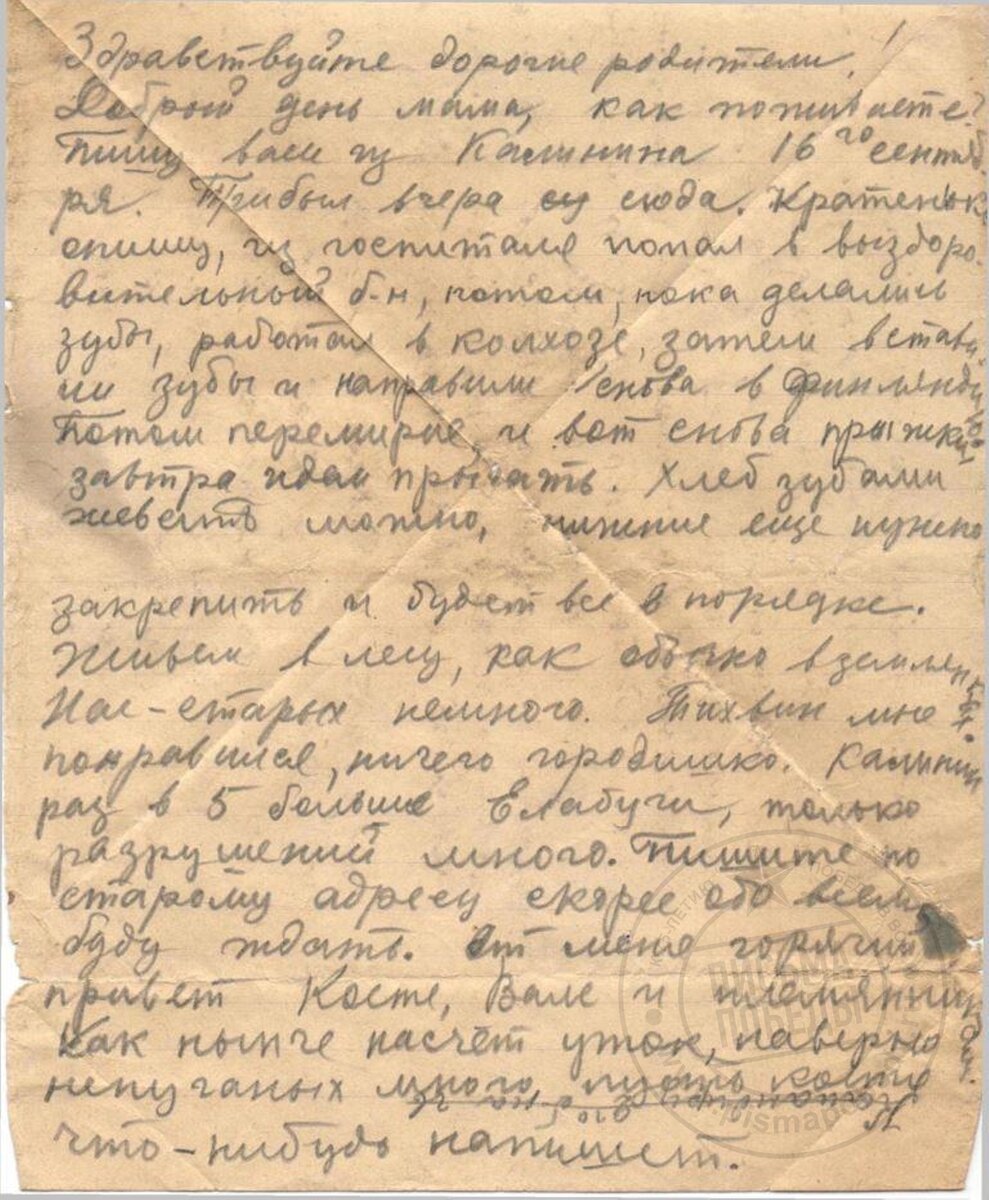 Здравствуйте дорогие родители!
Добрый день мама, как поживаете?
Пишу вам из Калинина 16го сентяб-
ря. Прибыл вчера сюда. Кратеньк
опишу, из госпиталя попал в выздоро-
вительный б-н, потом, пока делались
зубы, работал в колхозе, затем встави-
ли зубы и направили снова в Финлянди
Потом перемирие и вот снова прыжки,
завтра идем прыгать. Хлеб зубами
жевать можно, нижние еще нужно
закрепить и будет все в порядке.
Живем в лесу, как обычно в землянках.
Нас-старых немного. Тихвин мне
понравился, ничего городишко. Калинин
раз в 5 больше Елабуги, только
разрушений много. Пишите по
старому адресу скорее обо всем
буду ждать. От меня горячий
привет Косте, Вале и племянникам.
Как нынче насчет уток, наверно
непуганых много, пусть Костя
что-нибудь напишет.
ПИСЬМА
ПОБЕДЫ